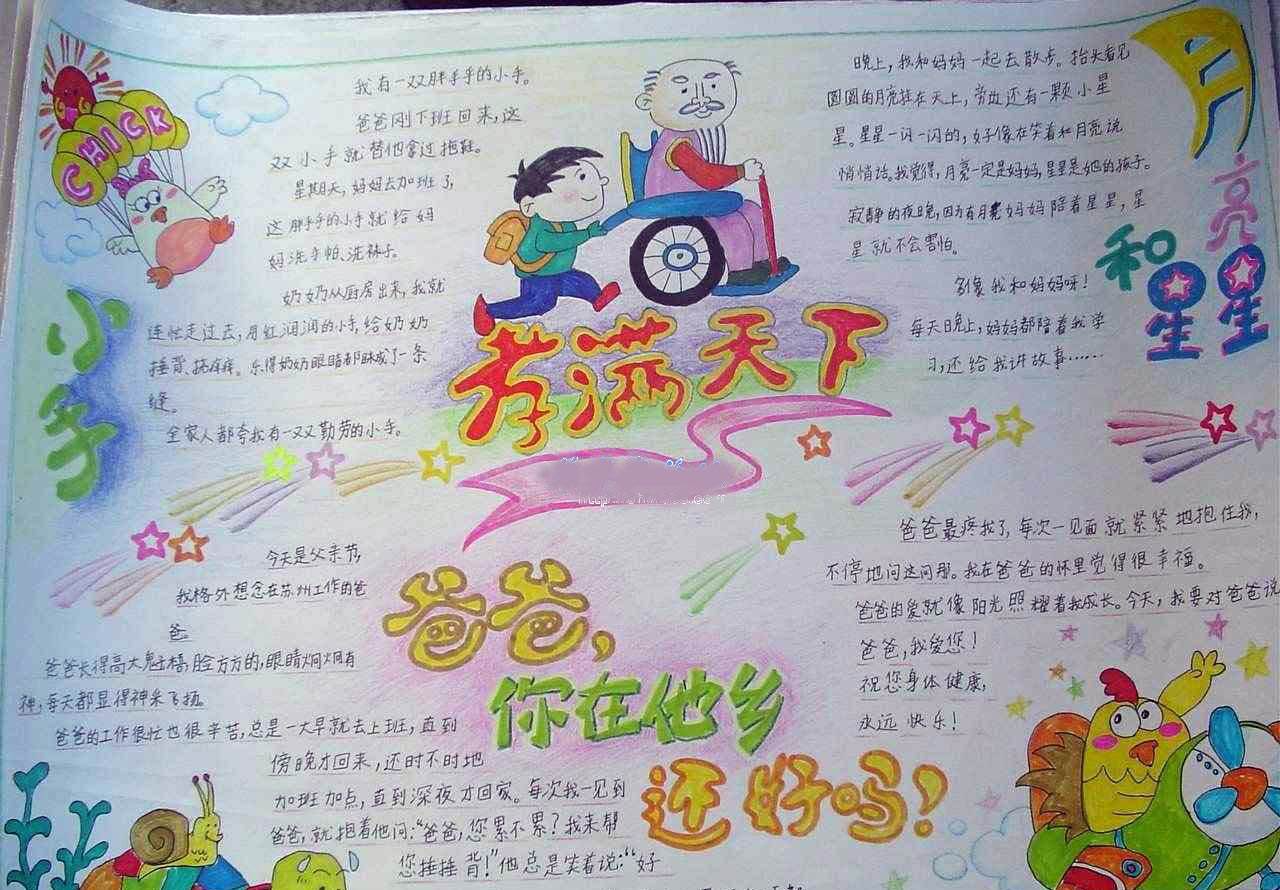 CHICK
小手
我有一双胖乎乎的小手。
爸爸刚下班回来,这
双小手就替他拿过拖鞋。
星期天,妈妈去加班了,
这胖乎乎的小手就给妈
妈洗手帕、洗袜子。
奶奶从厨房出来,我就
连忙走过去,用红润润的小手,给奶奶
捶背、挠痒痒。乐得奶奶眼睛都眯成了一条
缝。
全家人都夸我有一双勤劳的小手。
孝满天下
月亮和星星
晚上,我和妈妈一起去散步。抬头看见
圆圆的月亮挂在天上,旁边还有一颗小星
星。星星一闪一闪的,好像在笑着和月亮说
悄悄话。我觉得,月亮一定是妈妈,星星是她的孩子。
寂静的夜晚,因为有月亮妈妈陪着星星,星
星就不会害怕。
多像我和妈妈呀!
每天晚上,妈妈都陪着我学
习,还给我讲故事……
爸爸,
你在他乡
还好吗?
今天是父亲节,
我格外想念在苏州工作的爸
爸。
爸爸长得高大魁梧,脸方方的,眼睛炯炯有
神,每天都显得神采飞扬。
爸爸的工作很忙也很辛苦,总是一大早就去上班,直到
傍晚才回来,还时不时地
加班加点,直到深夜才回家。每次我一见到
爸爸,就抱着他问:“爸爸,您累不累?我来帮
您捶捶背!”他总是笑着说:“好
爸爸最疼我了,每次一见面就紧紧地抱住我,
不停地问这问那。我在爸爸的怀里觉得很幸福。
爸爸的爱就像阳光照耀着我成长。今天,我要对爸爸说
爸爸,我爱您!
祝您身体健康,
永远快乐!